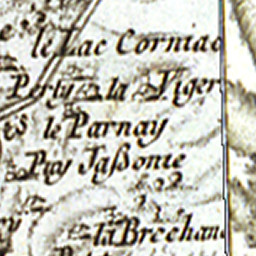 le Lac Corniac
Perly la Viger
le Parnay
Puy Jaßonie
la Brechan